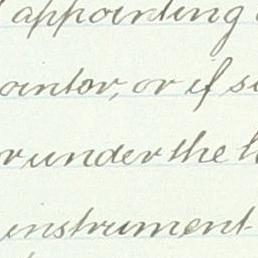 appointing
ointor, or if su
or under the l
instrument